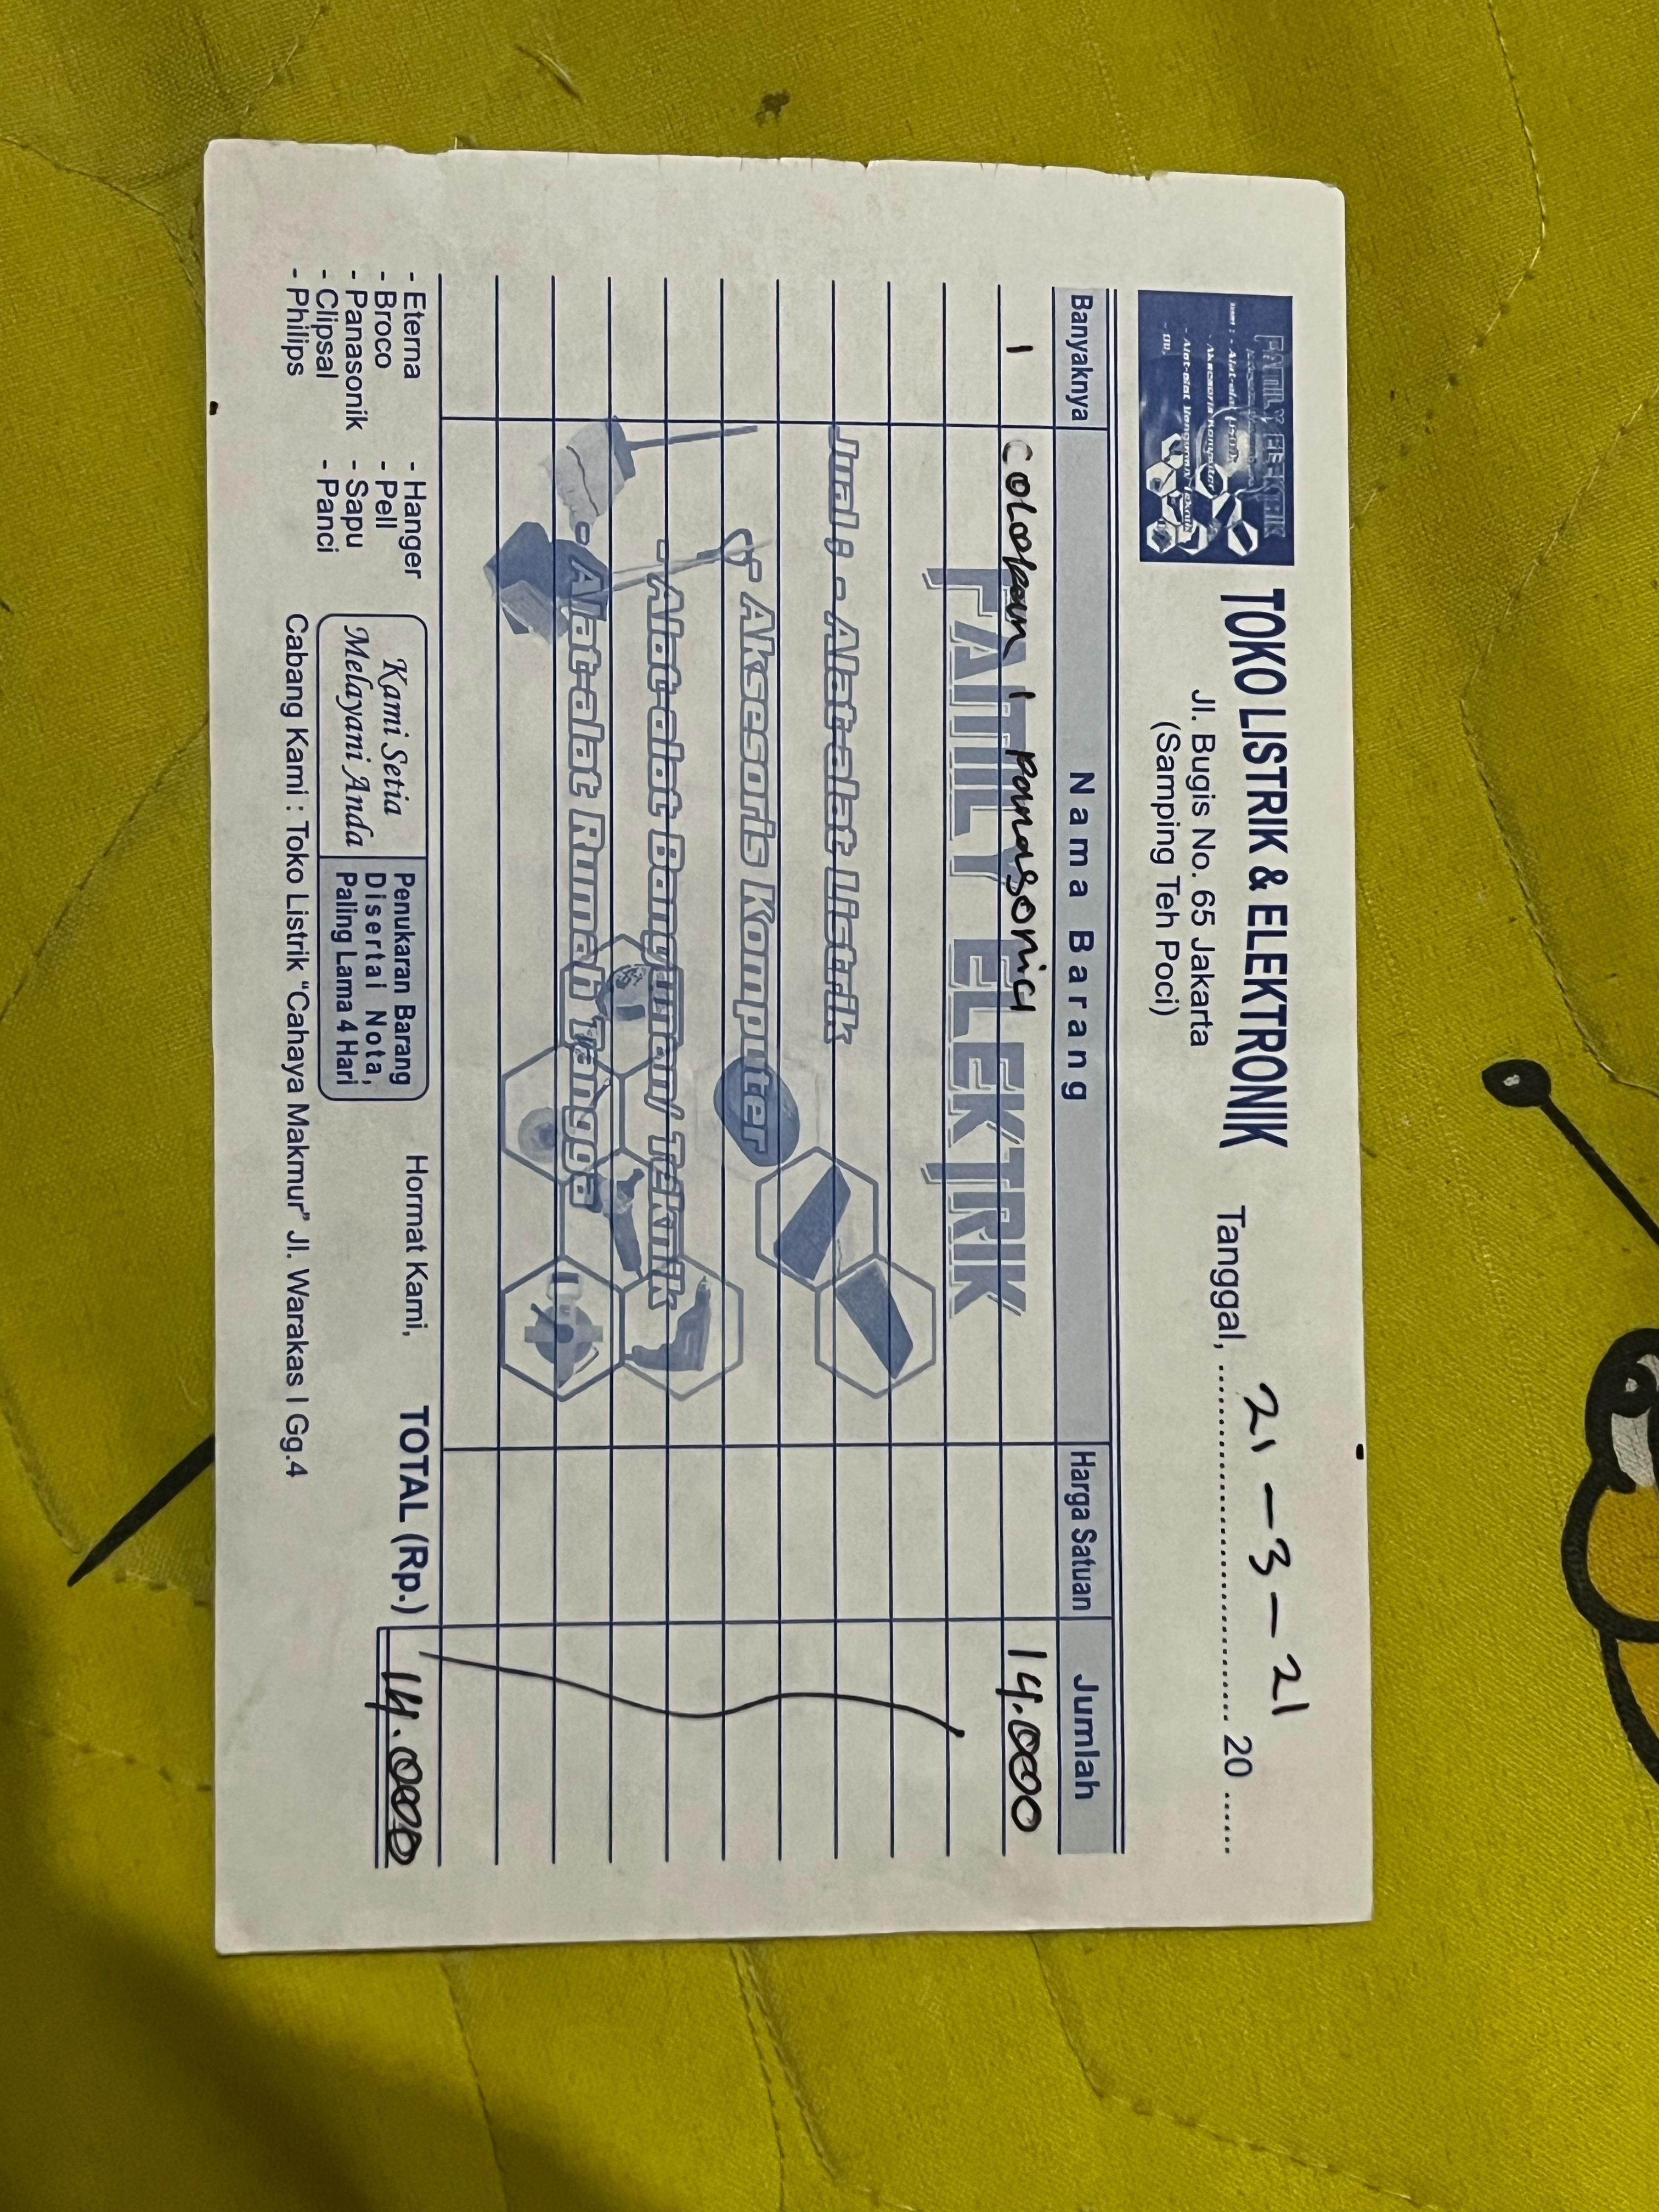 FAMILY ELEKTRIK
TOKO LISTRIK & ELEKTRONIK
Jl. Bugis No. 65 Jakarta
(Samping Teh Poci)
Tanggal, 21 - 3 - 21 20 ......
Banyaknya Nama Barang Harga Satuan Jumlah
1 colokan 1 panasonic 14.000
FAMILY ELEKTRIK
Jual : - Alat-alat Listrik
- Aksesoris Komputer
- Alat-alat Bangunan/ Teknik
- Alat-alat Rumah Tangga
TOTAL (Rp.) 14.000
- Eterna
- Broco
- Panasonik
- Clipsal
- Philips
- Hanger
- Pell
- Sapu
- Panci
Kami Setia
Melayani Anda
Penukaran Barang
Disertai Nota,
Paling Lama 4 Hari
Hormat Kami,
Cabang Kami : Toko Listrik "Cahaya Makmur" Jl. Warakas I Gg.4